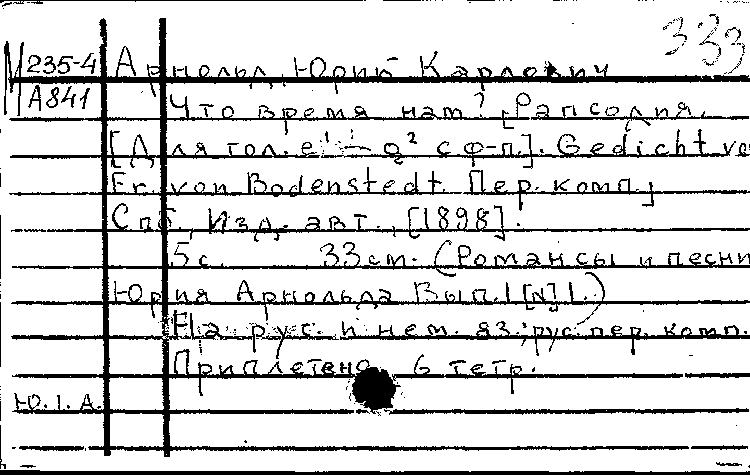 333
М 235-4 Арнольд, Юрий Карлович
А841 Что время нам? [Рапсодия.
[Для гол. e¹ — g² с ф-п.]. Gedicht vo
Fr. von Bodenstedt. Пер. комп.]
Спб., Изд. авт., [1898].
5с. 33см. (Романсы и песни
Юрия Арнольда Вып. I [N] 1.)
На рус. и нем. яз.; рус. пер. комп.
Приплетено 6 тетр.
Ю. I. А.